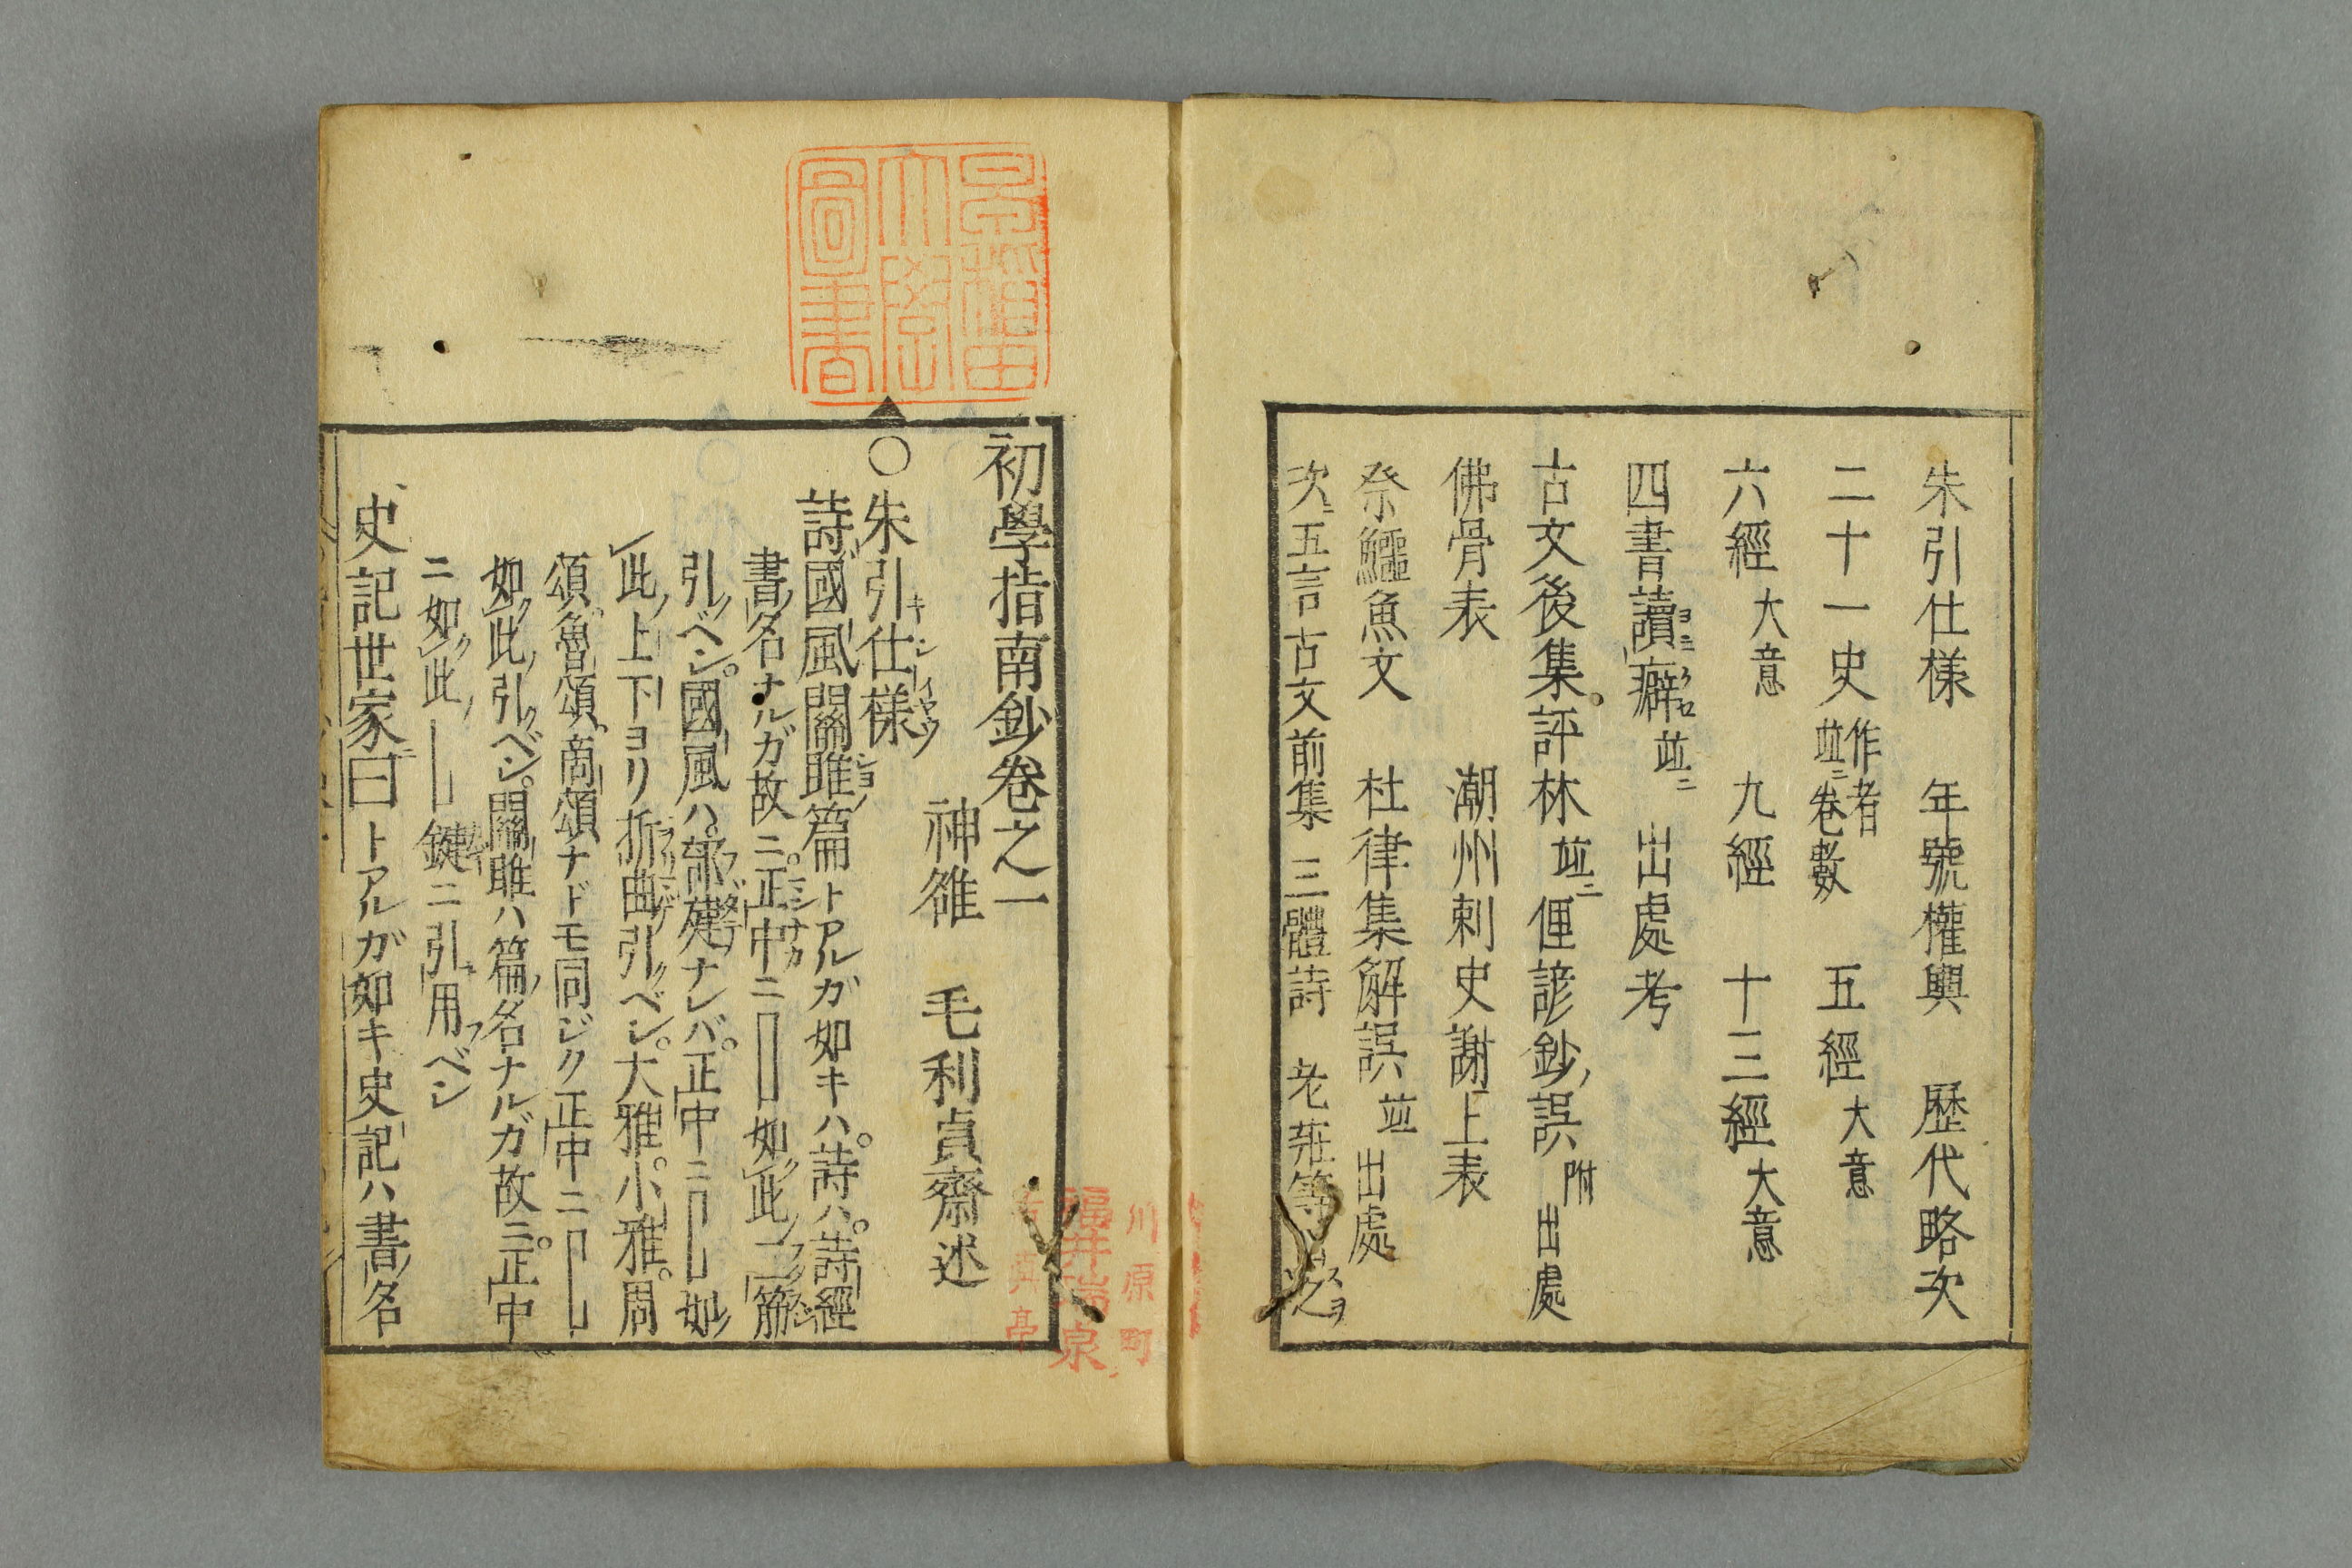 朱引仕様 年號權輿 歷代略次
二十一史 作者並ニ卷數 五經大意
六經大意 九經 十三經大意
四書讀癖並ニ 出處考
古文後集評林並ニ俚諺鈔ノ誤附出處
佛骨表 潮州刺史謝上表
祭鱷魚文 杜律集解誤並出處
次ニ五言古文前集 三體詩 老莊等
初學指南鈔卷之一
神雒 毛利貞齋述
○朱引仕様
詩國風關雎篇トアルガ如キハ。詩ハ。詩經ノ
書ノ名ナルガ故ニ。正中ニ 如此ノ二筋
引ベシ。國風ハ。部建ナレバ。正中ニ 如
此ノ上下ヨリ折曲引ベシ。大雅。小雅。周
頌。魯頌。商頌ナドモ同ジク正中ニ
如此ノ引ベシ。關雎ハ篇ノ名ナルガ故ニ。正中
ニ如此ノ 鍵ニ引用ベシ
史記世家曰トアルガ如キ史記ハ書ノ名
早稲田大學圖書
川原町
福井瑞泉